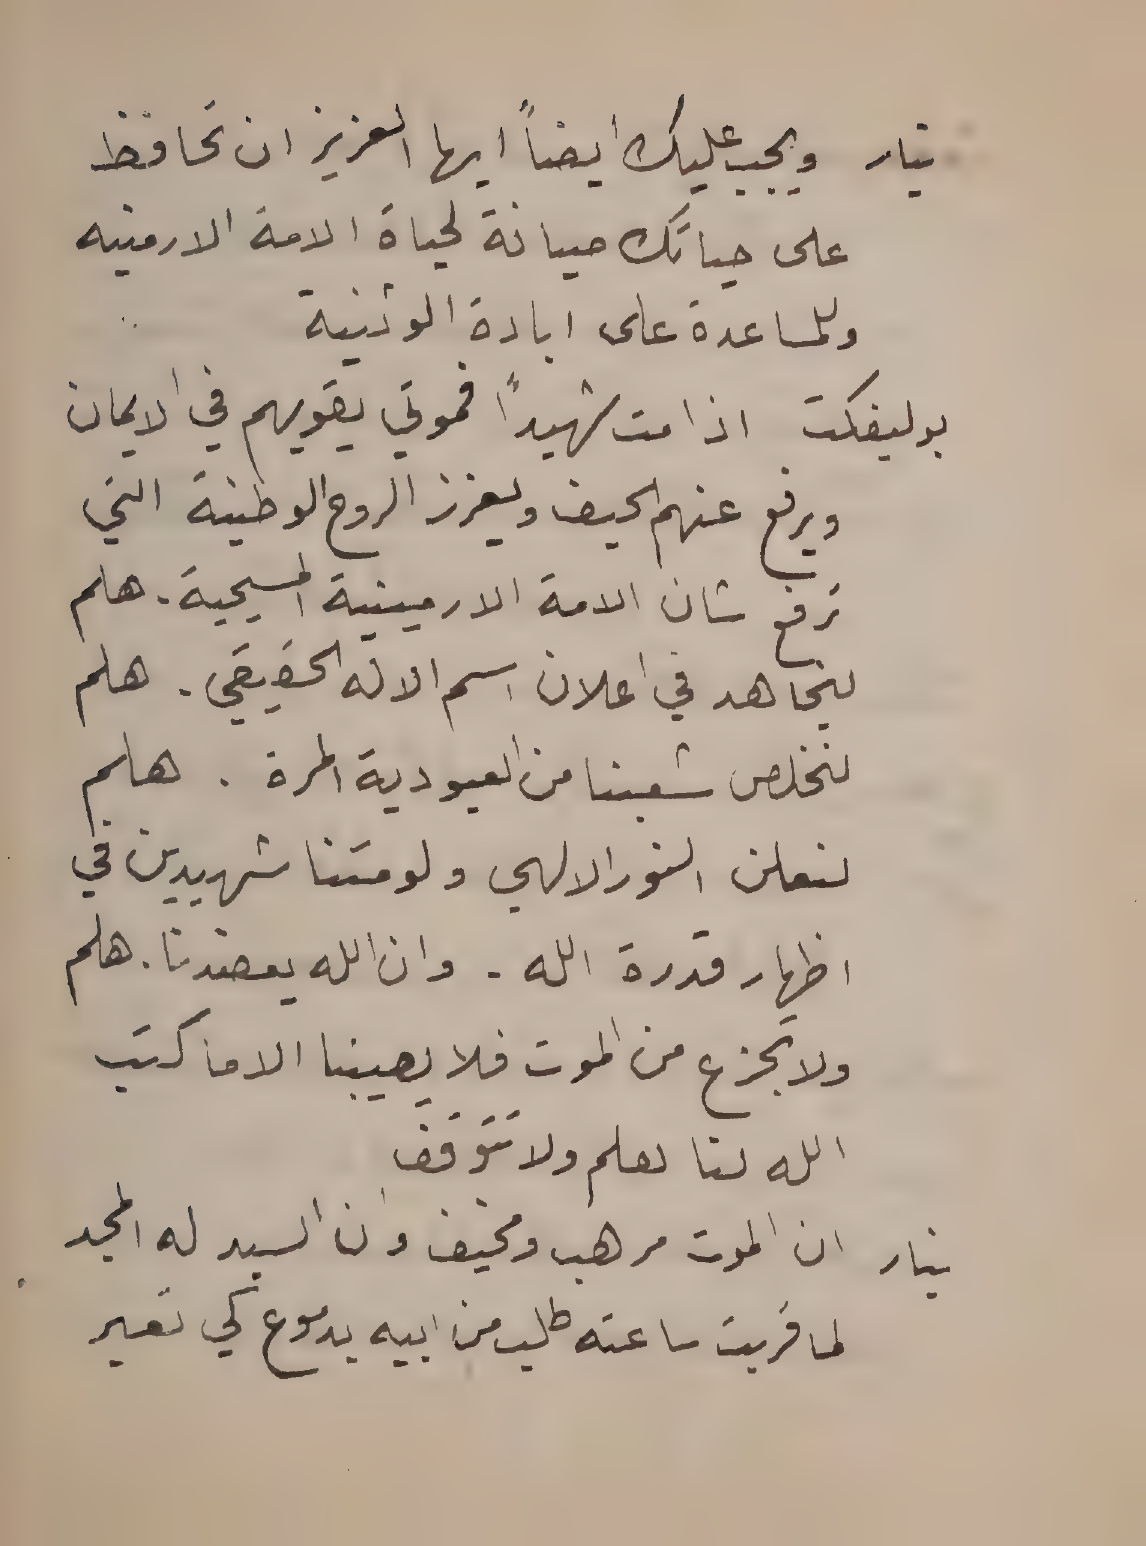 نيار ويجب عليك ايضاً ايها العزيز ان تحافظ
على حياتك صيانة لحياة الامة الارمنيه
وللمساعدة على ابادة الوثنية
بوليفكت اذا مت شهيداً فموتي يقويهم في الايمان
ويرفع عنهم الحيف ويعزز الروح الوطنية التي
ترفع شان الامة الارمينية المسيحية. هلم
لنجاهد في اعلان اسم الاله الحقيقي. هلم
لنخلص شعبنا من العبودية المرة. هلم
لنعلن النور الالهي ولو متنا شهيدين في
اظهار قدرة الله. وان الله يعضدنا. هلم
ولا تجزع من الموت فلا يصيبنا الا ما كتب
الله لنا هلم ولا تتوقف
نيار ان الموت مرهب ومخيف وان السيد له المجد
لما قربت ساعته طلب من ابيه بدموع كي تعبر